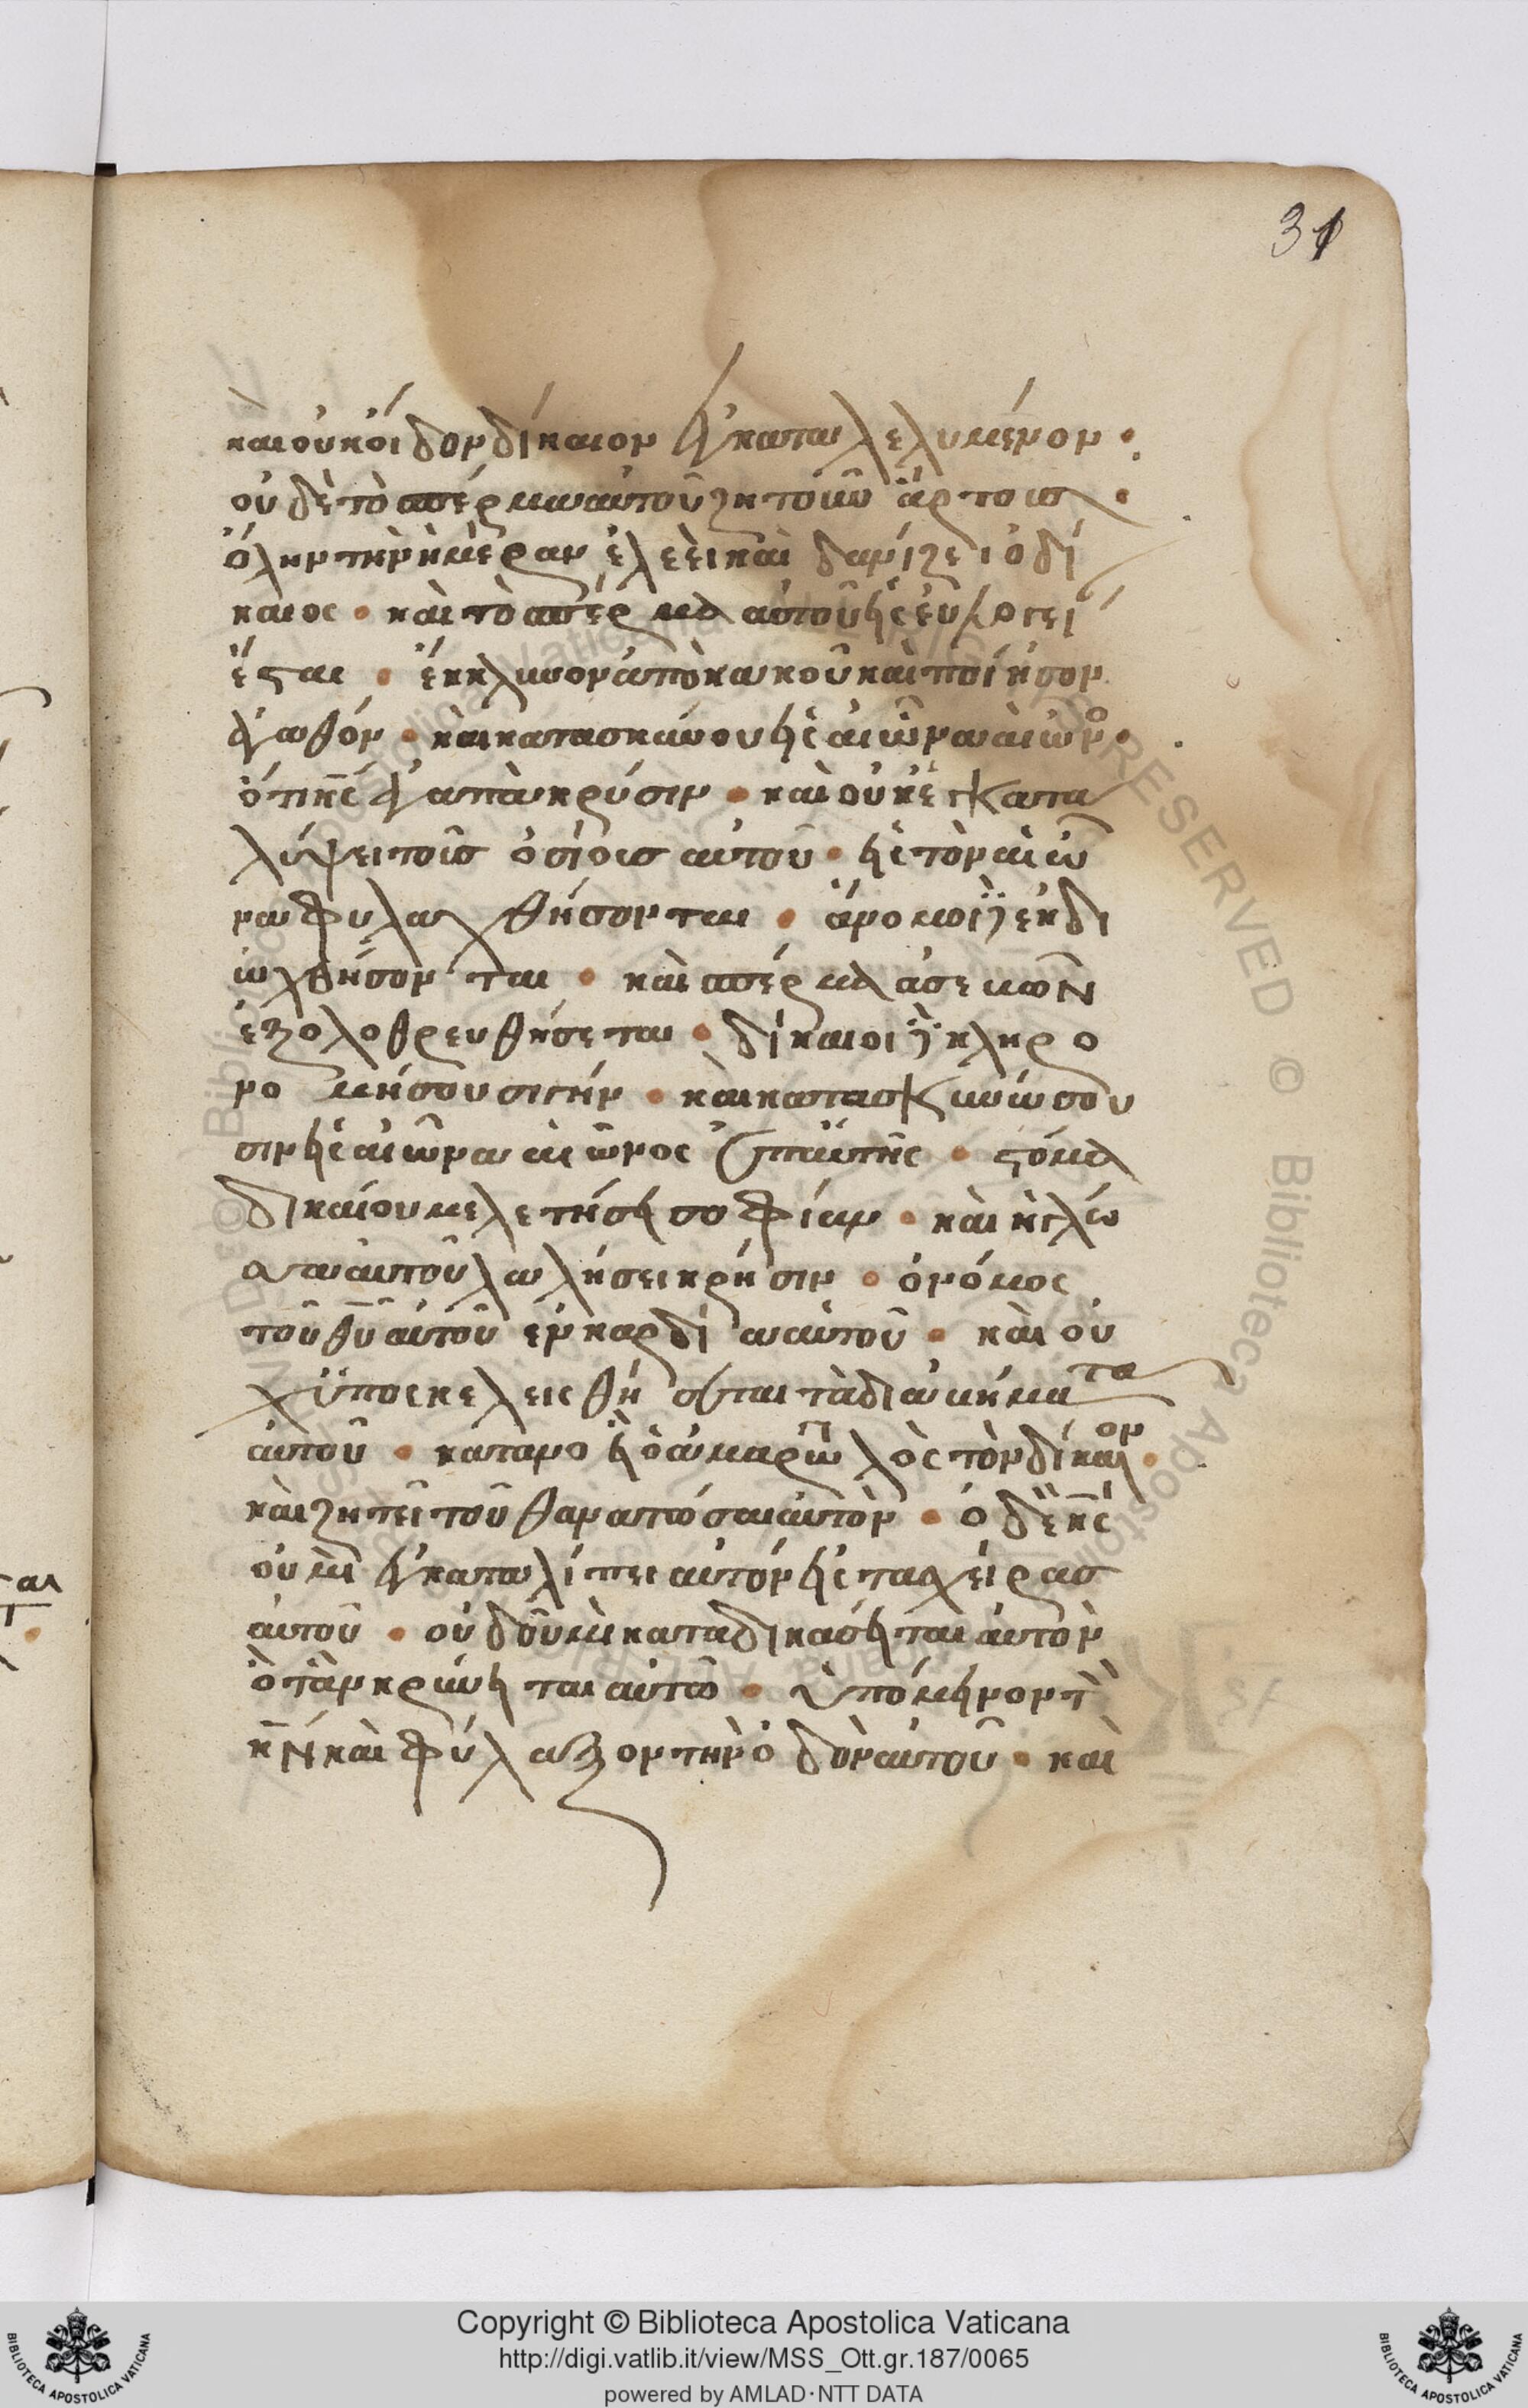 31
καὶ οὐκ οἶδον δίκαιον ἐγκαταλελυμένον ·
οὐδὲ τὸ σπέρμα αὐτοῦ ζητοῦν ἄρτοις ·
ὅλην τὴν ἡμέραν ἐλεεῖ καὶ δανίζει ὁ δί
καιος · καὶ τὸ σπέρμα αὐτοῦ εἰς εὐ
ἔσται · ἔκκλινον ἀπὸ κακοῦ καὶ ποίησον
ἀγαθόν · καὶ κατασκήνου εἰς αἰῶνα αἰῶνο ·
ὅτι κς ἀγαπᾶ κρύσιν · καὶ οὐκ ἐγκατα
λύψει τοῖς ὁσίοις αὐτοῦ · εἰς τὸν αἰῶ
να φυλαχθήσονται · ἄνομοι ἐκδι
ωχθήσονται · καὶ σπέρμα ἀσεμῶν
ἐξολοθρευθήσεται · δίκαιοι κληρο
νομήσουσι γήν · καὶ κατασκηνώσου
σιν εἰς αἰῶνα αἰῶνος ἐπ αὐτῆς · στόμα
δικαίου μελετήσει σοφίαν · καὶ ἡ γλῶ
σσα αὐτοῦ λαλήσει κρήσιν · ὁ νόμος
τοῦ θυ αὐτοῦ ἐν καρδία αὐτοῦ · καὶ οὐ
χ ὑποσκελεισθήσεται τὰ διαυήματα
αὐτοῦ · κατανοεῖ ὁ ἁμαρτωλὸς τὸν δίκαιον ·
καὶ ζητεῖ τοῦ θανατῶσαι αὐτὸν · ὁ δὲ κς
οὐ μὴ ἐγκαταλίπει αὐτόν εἰς τας χεῖρας
αὐτοῦ · οὐδ οὐ μὴ καταδικάσηται αὐτὸν
ὅταν κρίνηται αὐτῶ · ὑπόμεινον τὸν
κν καὶ φύλαξον τὴν ὁδὸν αὐτοῦ · καὶ
Copyright © Biblioteca Apostolica Vaticana
http://digi.vatlib.it/view/MSS_Ott.gr.187/0065
powered by AMLAD·NTT DATA
BIBLIOTECA APOSTOLICA VATICANA
BIBLIOTECA APOSTOLICA VATICANA